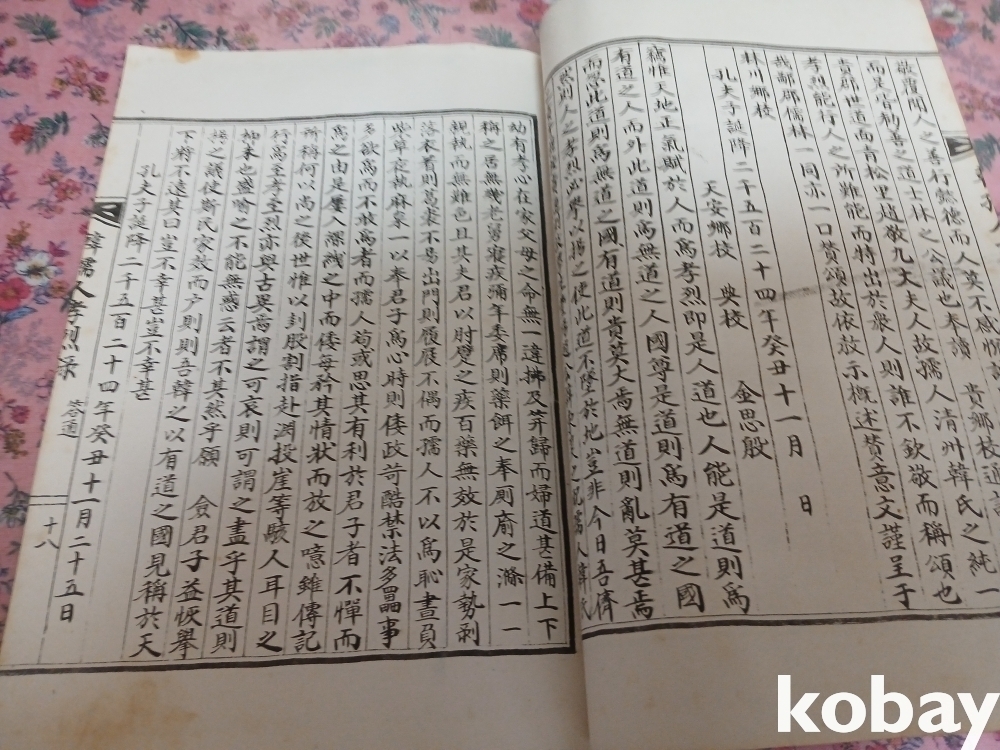 敬覆聞人之善行懿德而人莫不感
而是官勸善之道士林之公議也本讀 貴鄉校通
貴郡世道面青松里趙敬九丈夫人故孺人淸州韓氏之純一
孝烈能行人之所難能而特出於衆人則誰不欽敬而稱頌也
我鄙郡儒林一同亦一口贊頌故依放示槪述贊意文謹呈于
林川鄉校
孔夫子誕降二千五百二十四年癸丑十一月 日
天安鄉校 典校 金思殷
竊惟天地正氣賦於人而爲孝烈卽是人道也人能是道則爲
有道之人而外此道則爲無道之人國尊是道則爲有道之國
而忽此道則爲無道之國有道則貴莫大焉無道則亂莫甚焉
然則人之孝烈必擧以揚之使此道不墜於地豈非今日吾儕
幼有孝心在家父母之命無一違拂及笄歸而婦道甚備上下
稱之居無幾老舅寢疾彌年委席則藥餌之奉厠牏之滌一一
親執而無難色且其夫君以肘臂之疾百藥無效於是家勢剝
落衣着則葛裘不易出門則屐不偶而孺人不以爲恥晝員
柴草夜執麻枲一以奉君子爲心時則倭政苛酷禁法多端事
多欲爲而不敢爲者而孺人苟或思其有利於君子者不憚而
爲之由是屢入深緘之中而倭每矜其情狀而放之噫雖傳記
所稱何以尙之後世惟以刲股割指赴淵投崖等駭人耳目之
行爲至孝至烈亦與古異焉謂之可哀則可謂之盡乎其道則
抑末也盛喻之不能無惑云者不其然乎願 僉君子益恢擧
揚之議使斯民家效而戶則則吾韓之以有道之國見稱於天
下將不遠其曰豈不幸甚豈不幸甚
孔夫子誕降二千五百二十四年癸丑十一月二十五日
韓孺人孝烈錄 答通 十八
kobay